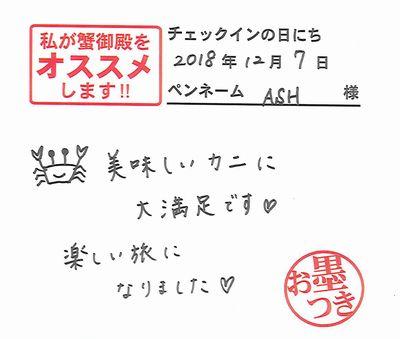 私が蟹御殿を
オススメ
します!!
チェックインの日にち
2018年12月7日
ペンネーム ASH 様
美味しいカニに
大満足です♡
楽しい旅に
なりました♡
お墨つき